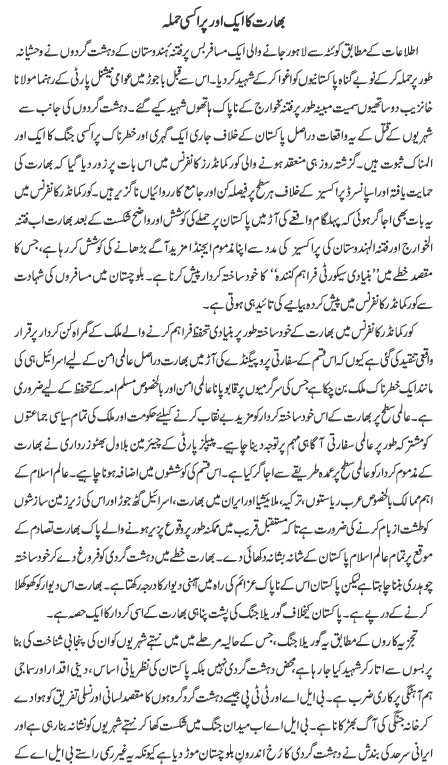 بھارت کا ایک اور پراکسی حملہ
اطلاعات کے مطابق کوئٹہ سے لاہور جانے والی ایک مسافر بس پر فتنہ ہندوستان کے دہشت گردوں نے وحشیانہ
طور پر حملہ کر کے نو بے گناہ پاکستانیوں کو اغوا کر کے شہید کر دیا۔ اس سے قبل باجوڑ میں عوامی نیشنل پارٹی کے رہنما مولانا
خانزیب دو ساتھیوں سمیت مبینہ طور پر فتنہ خوارج کے ناپاک ہاتھوں شہید کیے گئے۔ دہشت گردوں کی جانب سے
شہریوں کے قتل کے یہ واقعات دراصل پاکستان کے خلاف جاری ایک گہری اور خطرناک پراکسی جنگ کا ایک اور
المناک ثبوت ہیں۔ گزشتہ روز ہی منعقد ہونے والی کور کمانڈرز کانفرنس میں اس بات پر زور دیا گیا کہ بھارت کی
حمایت یافتہ اور اسپانسرڈ پراکسیز کے خلاف ہر سطح پر فیصلہ کن اور جامع کارروائیاں ناگزیر ہیں۔ کور کمانڈر کانفرنس میں
یہ بات بھی اجاگر ہوئی کہ پہلگام واقعے کی آڑ میں پاکستان پر حملے کی کوشش اور واضح شکست کے بعد بھارت اب فتنہ
الخوارج اور فتنہ الہندوستان کی پراکسیز کی مدد سے اپنا مذموم ایجنڈا مزید آگے بڑھانے کی کوشش کر رہا ہے، جس کا
مقصد خطے میں ’’بنیادی سیکورٹی فراہم کنندہ‘‘ کا خود ساختہ کردار پیش کرنا ہے۔ بلوچستان میں مسافروں کی شہادت
سے کور کمانڈر کانفرنس میں پیش کردہ بیانیے کی تائید ہی ہوتی ہے۔
کور کمانڈر کانفرنس میں بھارت کے خود ساختہ طور پر بنیادی تحفظ فراہم کرنے والے ملک کے گمراہ کن کردار پر قرار
واقعی تنقید کی گئی ہے کیوں کہ اس قسم کے سفارتی پروپیگنڈے کی آڑ میں بھارت دراصل عالمی امن کے لیے اسرائیل ہی کی
مانند ایک خطرناک ملک بن چکا ہے جس کی سرگرمیوں پر قابو پانا عالمی امن اور بالخصوص مسلم امہ کے تحفظ کے لیے ضروری
ہے۔ عالمی سطح پر بھارت کے اس خود ساختہ کردار کو مزید بے نقاب کرنے کیلئے حکومت اور ملک کی تمام سیاسی جماعتوں
کو مشترکہ طور پر عالمی سفارتی آگاہی مہم پر توجہ دینا چاہیے۔ پیپلز پارٹی کے چیئرمین بلاول بھٹو زرداری نے بھارت
کے مذموم کردار کو عالمی سطح پر عمدہ طریقے سے اجاگر کیا ہے۔ اس قسم کی کوششوں میں اضافہ ہونا چاہیے۔ عالم اسلام کے
اہم ممالک بالخصوص عرب ریاستوں، ترکیہ، ملائیشیا اور ایران میں بھارت، اسرائیل گٹھ جوڑ اور اس کی زیر زمین سازشوں
کو طشت از بام کرنے کی ضرورت ہے تاکہ مستقبل قریب میں ممکنہ طور پر وقوع پزیر ہونے والے پاک بھارت تصادم کے
موقع پر تمام عالم اسلام پاکستان کے شانہ بشانہ دکھائی دے۔ بھارت خطے میں دہشت گردی کو فروغ دے کر خود ساختہ
چوہدری بننا چاہتا ہے لیکن پاکستان اس کے ناپاک عزائم کی راہ میں آہنی دیوار کا درجہ رکھتا ہے۔ بھارت اس دیوار کو کھوکھلا
کرنے کے درپے ہے۔ پاکستان کیخلاف گوریلا جنگ کی پشت پناہی بھارت کے اسی کردار کا ایک حصہ ہے۔
تجزیہ کاروں کے مطابق یہ گوریلا جنگ، جس کے حالیہ مرحلے میں میں نہتے شہریوں کو ان کی پنجابی شناخت کی بنا
پر بسوں سے اتار کر شہید کیا جا رہا ہے، محض دہشت گردی نہیں بلکہ پاکستان کی نظریاتی اساس، دینی اقدار اور سماجی ہم
ہم آہنگی پر کاری ضرب ہے۔ بی ایل اے اور ٹی ٹی پی جیسے دہشت گرد گروہوں کا مقصد لسانی اور نسلی تفریق کو ہوا دے
کر خانہ جنگی کی آگ بھڑکانا ہے۔ بی ایل اے اب میدان جنگ میں شکست کھا کر نہتے شہریوں کو نشانہ بنا رہی ہے اور
ایرانی سرحد کی بندش نے دہشت گردی کا رخ اندرون بلوچستان موڑ دیا ہے کیونکہ یہ غیر رسمی راستے بی ایل اے کے